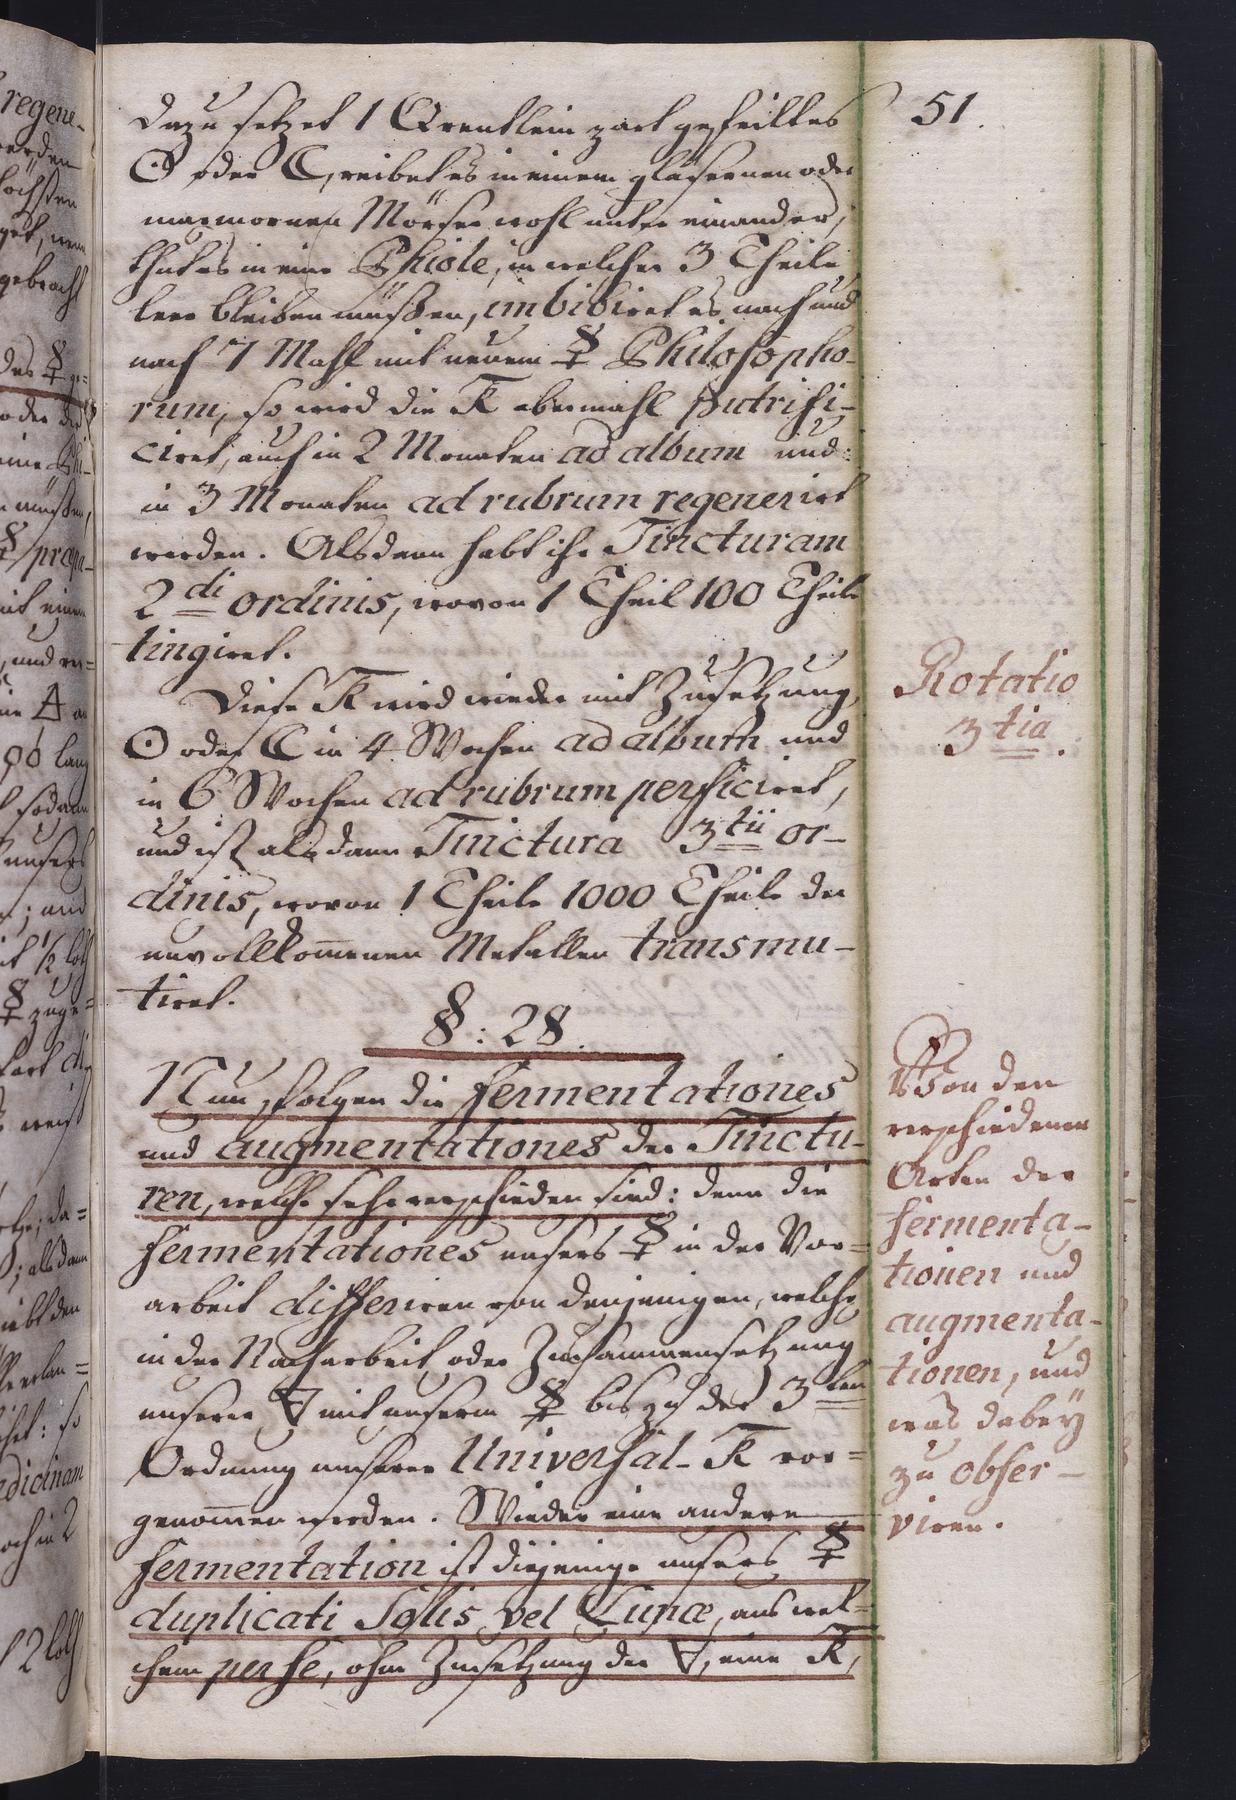 51.
dazu setzet 1 Quentlein zart gefeiltes
☉ oder ☾, reibet es in einem gläsernen oder
marmornen Mörser wohl unter einander,
thut es in eine Phiole, in welcher 3 Theile
leer bleiben müßen, imbibiret es nach und
nach 7 Mahl mit neuem ☿ Philosopho-
rum, so wird die R abermahl putrifi-
ciret, auch in 2 Monaten ad album und
in 3 Monaten ad rubrum regenerirt
werden. Alsdann habt ihr Tincturam
2di ordinis, wovon 1 Theil 100 Theile
tingiret.
Diese R wird wieder mit Zusetzung
☉ oder ☾ in 4 Wochen ad album und
in 6 Wochen ad rubrum perficiret,
und ist alsdann Tinctura 3tii or-
dinis, wovon 1 Theile 1000 Theile der
unvollkom̄enen Metallen transmu-
tiret.
Rotatio
3tia.
§: 28.
Nun folgen die fermentationes
und augmentationes der Tinctu-
ren, welche sehr verschieden sind: denn die
fermentationes unsers ☿ in der Vor=
arbeit differiren von denjenigen, welche
in der Nacharbeit oder Zusammensetzung
unserer 🜃 mit unserm ☿ bis zu der 3ten
Ordnung unserer Universal-R vor=
genom̄en werden. Wieder eine andere
fermentation ist diejenige unsers ☿
duplicati Solis vel Lunæ, aus wel=
chem per se, ohne Zusetzung der 🜃, eine R,
Von den
verschiedenen
Arten der
fermenta-
tionen und
augmenta-
tionen, und
was dabeÿ
zu obser-
viren.